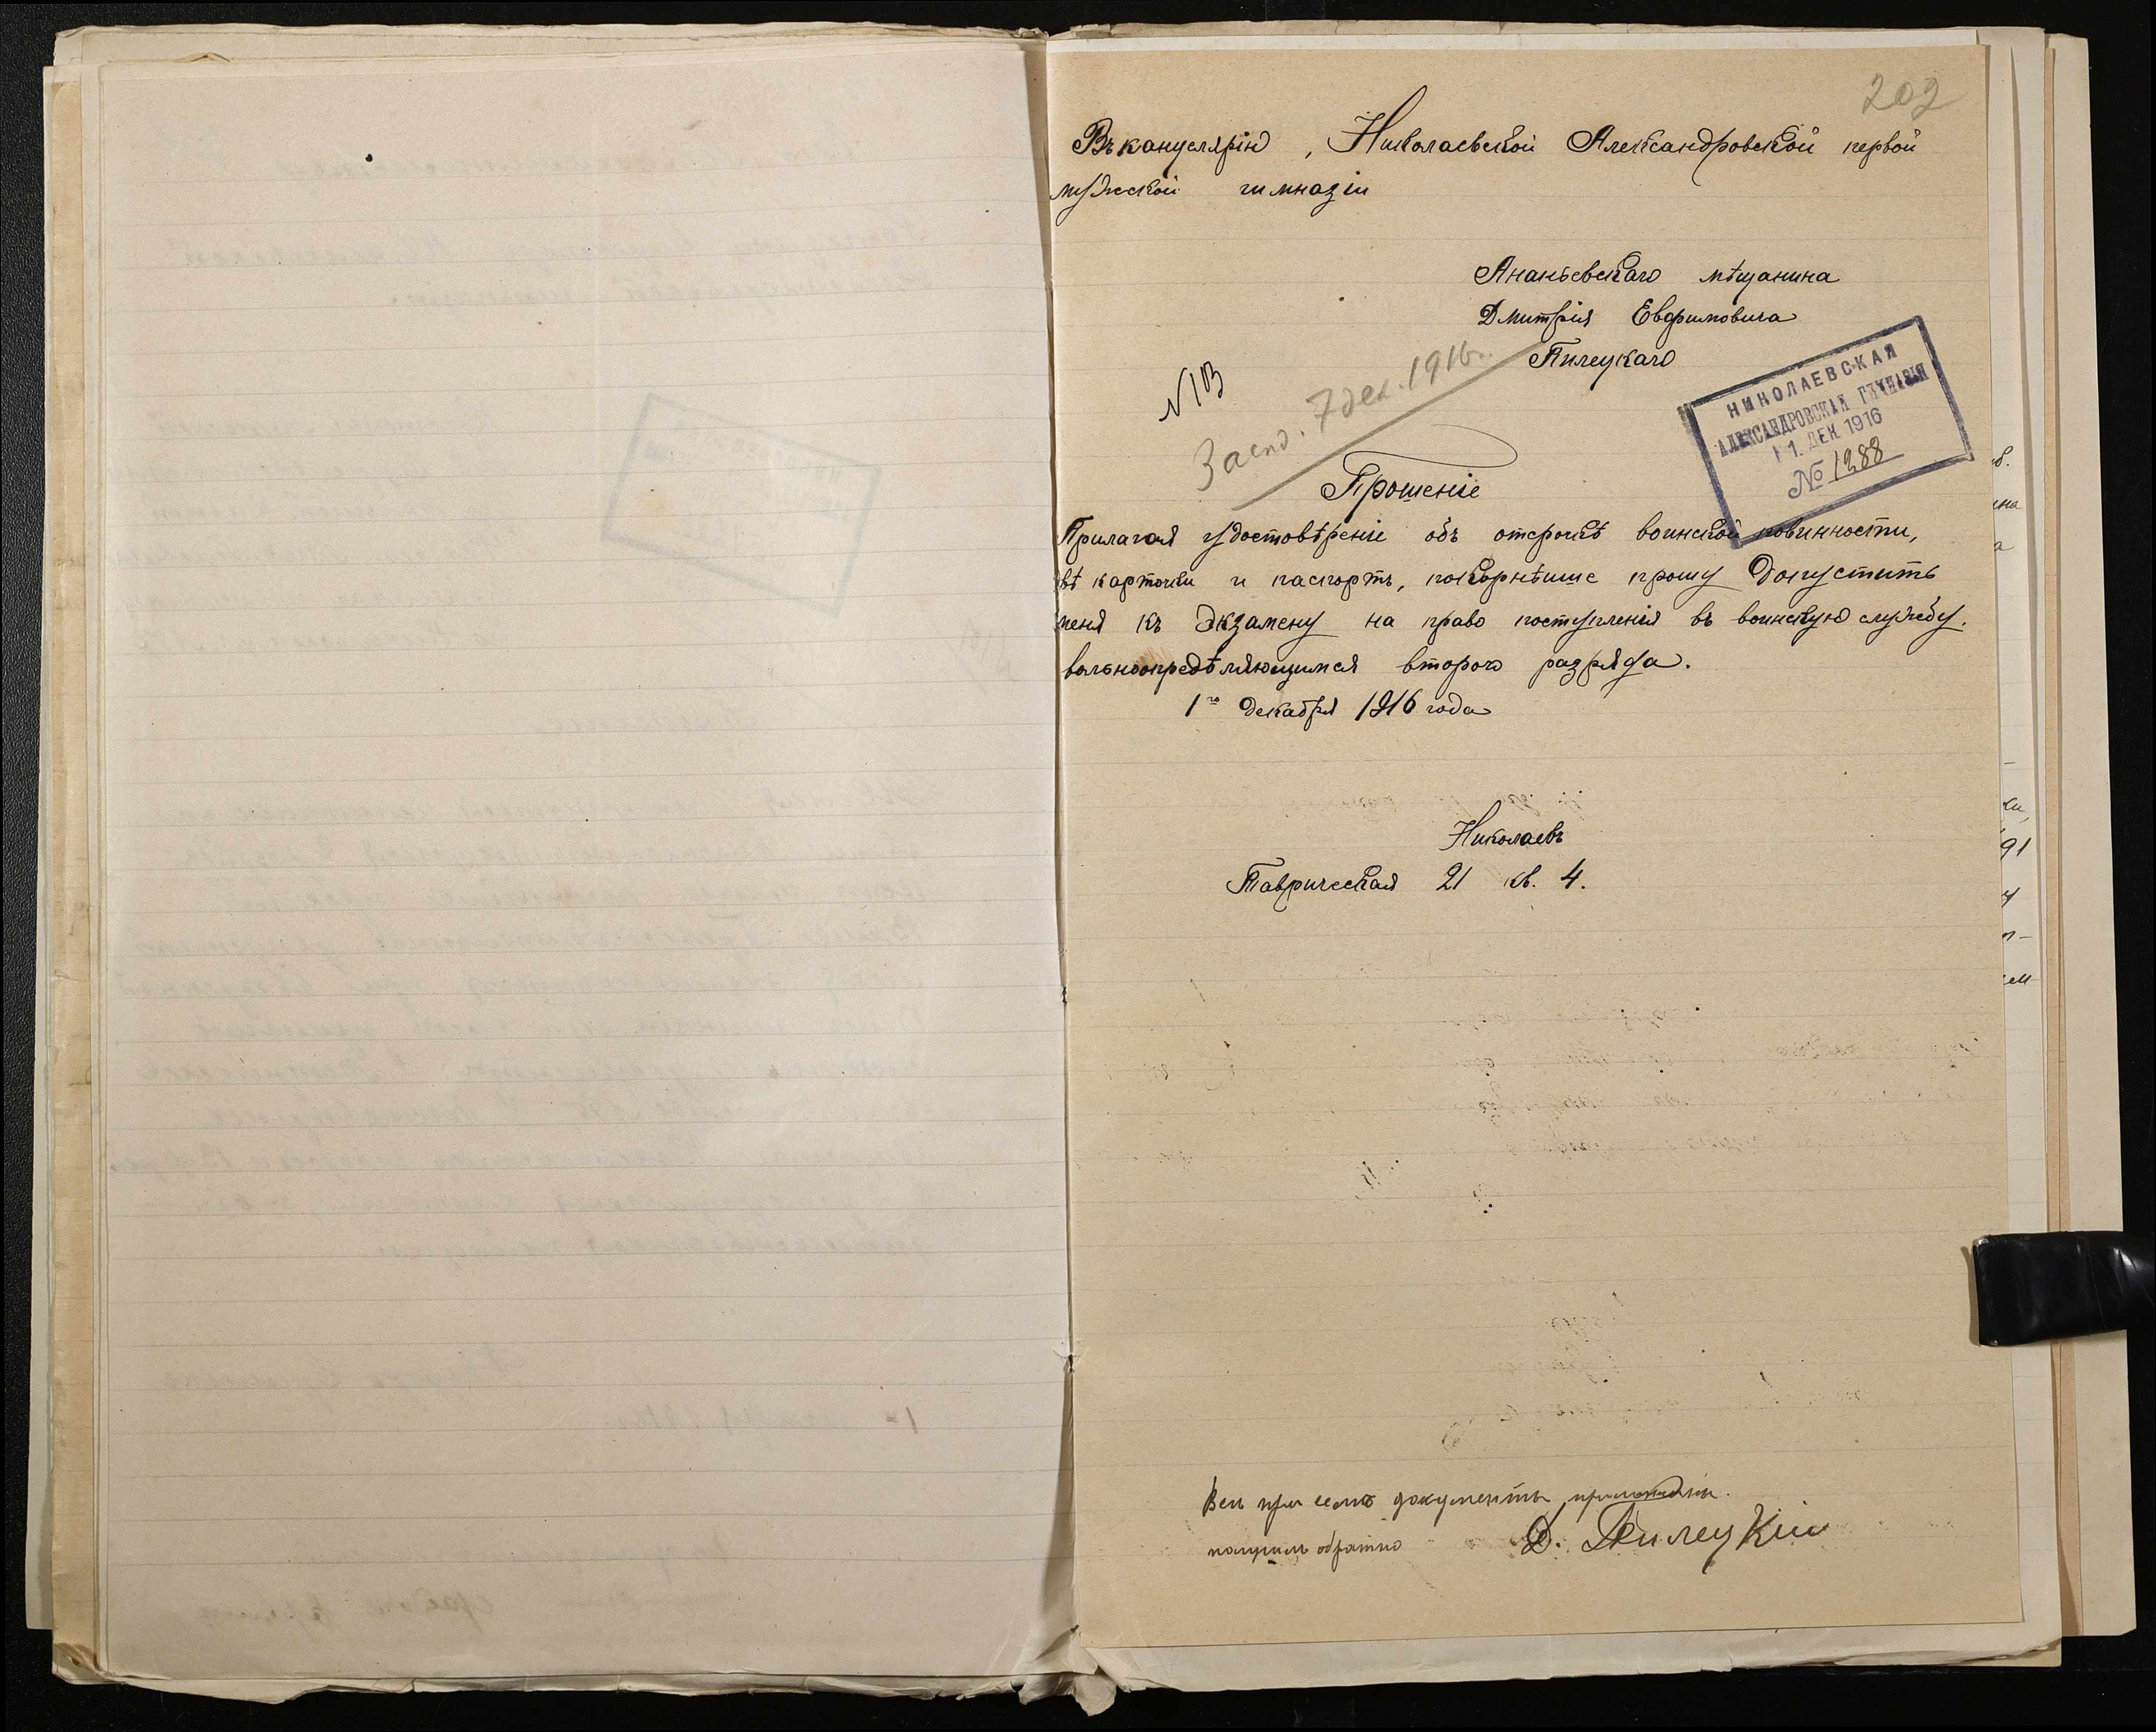 202
Въ канцелярію, Николаевской Александровской первой
мужской гимназіи
Ананьевскаго мѣщанина
Дмитрія Евфимовича
Пилецкаго
7 дек. 1916 г.
НИКОЛАЕВСКАЯ
АЛЕКСАНДРОВСКАЯ ГИМНАЗІЯ
1. ДЕК 1916
№ 1288
Прошеніе
Прилагая удостовѣреніе объ отсрочкѣ воинской повинности,
карточки и паспортъ, покорнѣише прошу допустить
меня къ экзамену на право поступленія въ воинскую службу.
вольноопредѣляющимся второго разряда.
1го декабря 1916 года
Николаевъ
Таврическая 21 кв. 4.
Всѣ при семъ документы приложены.
получилъ обратно Д. Пилецкій